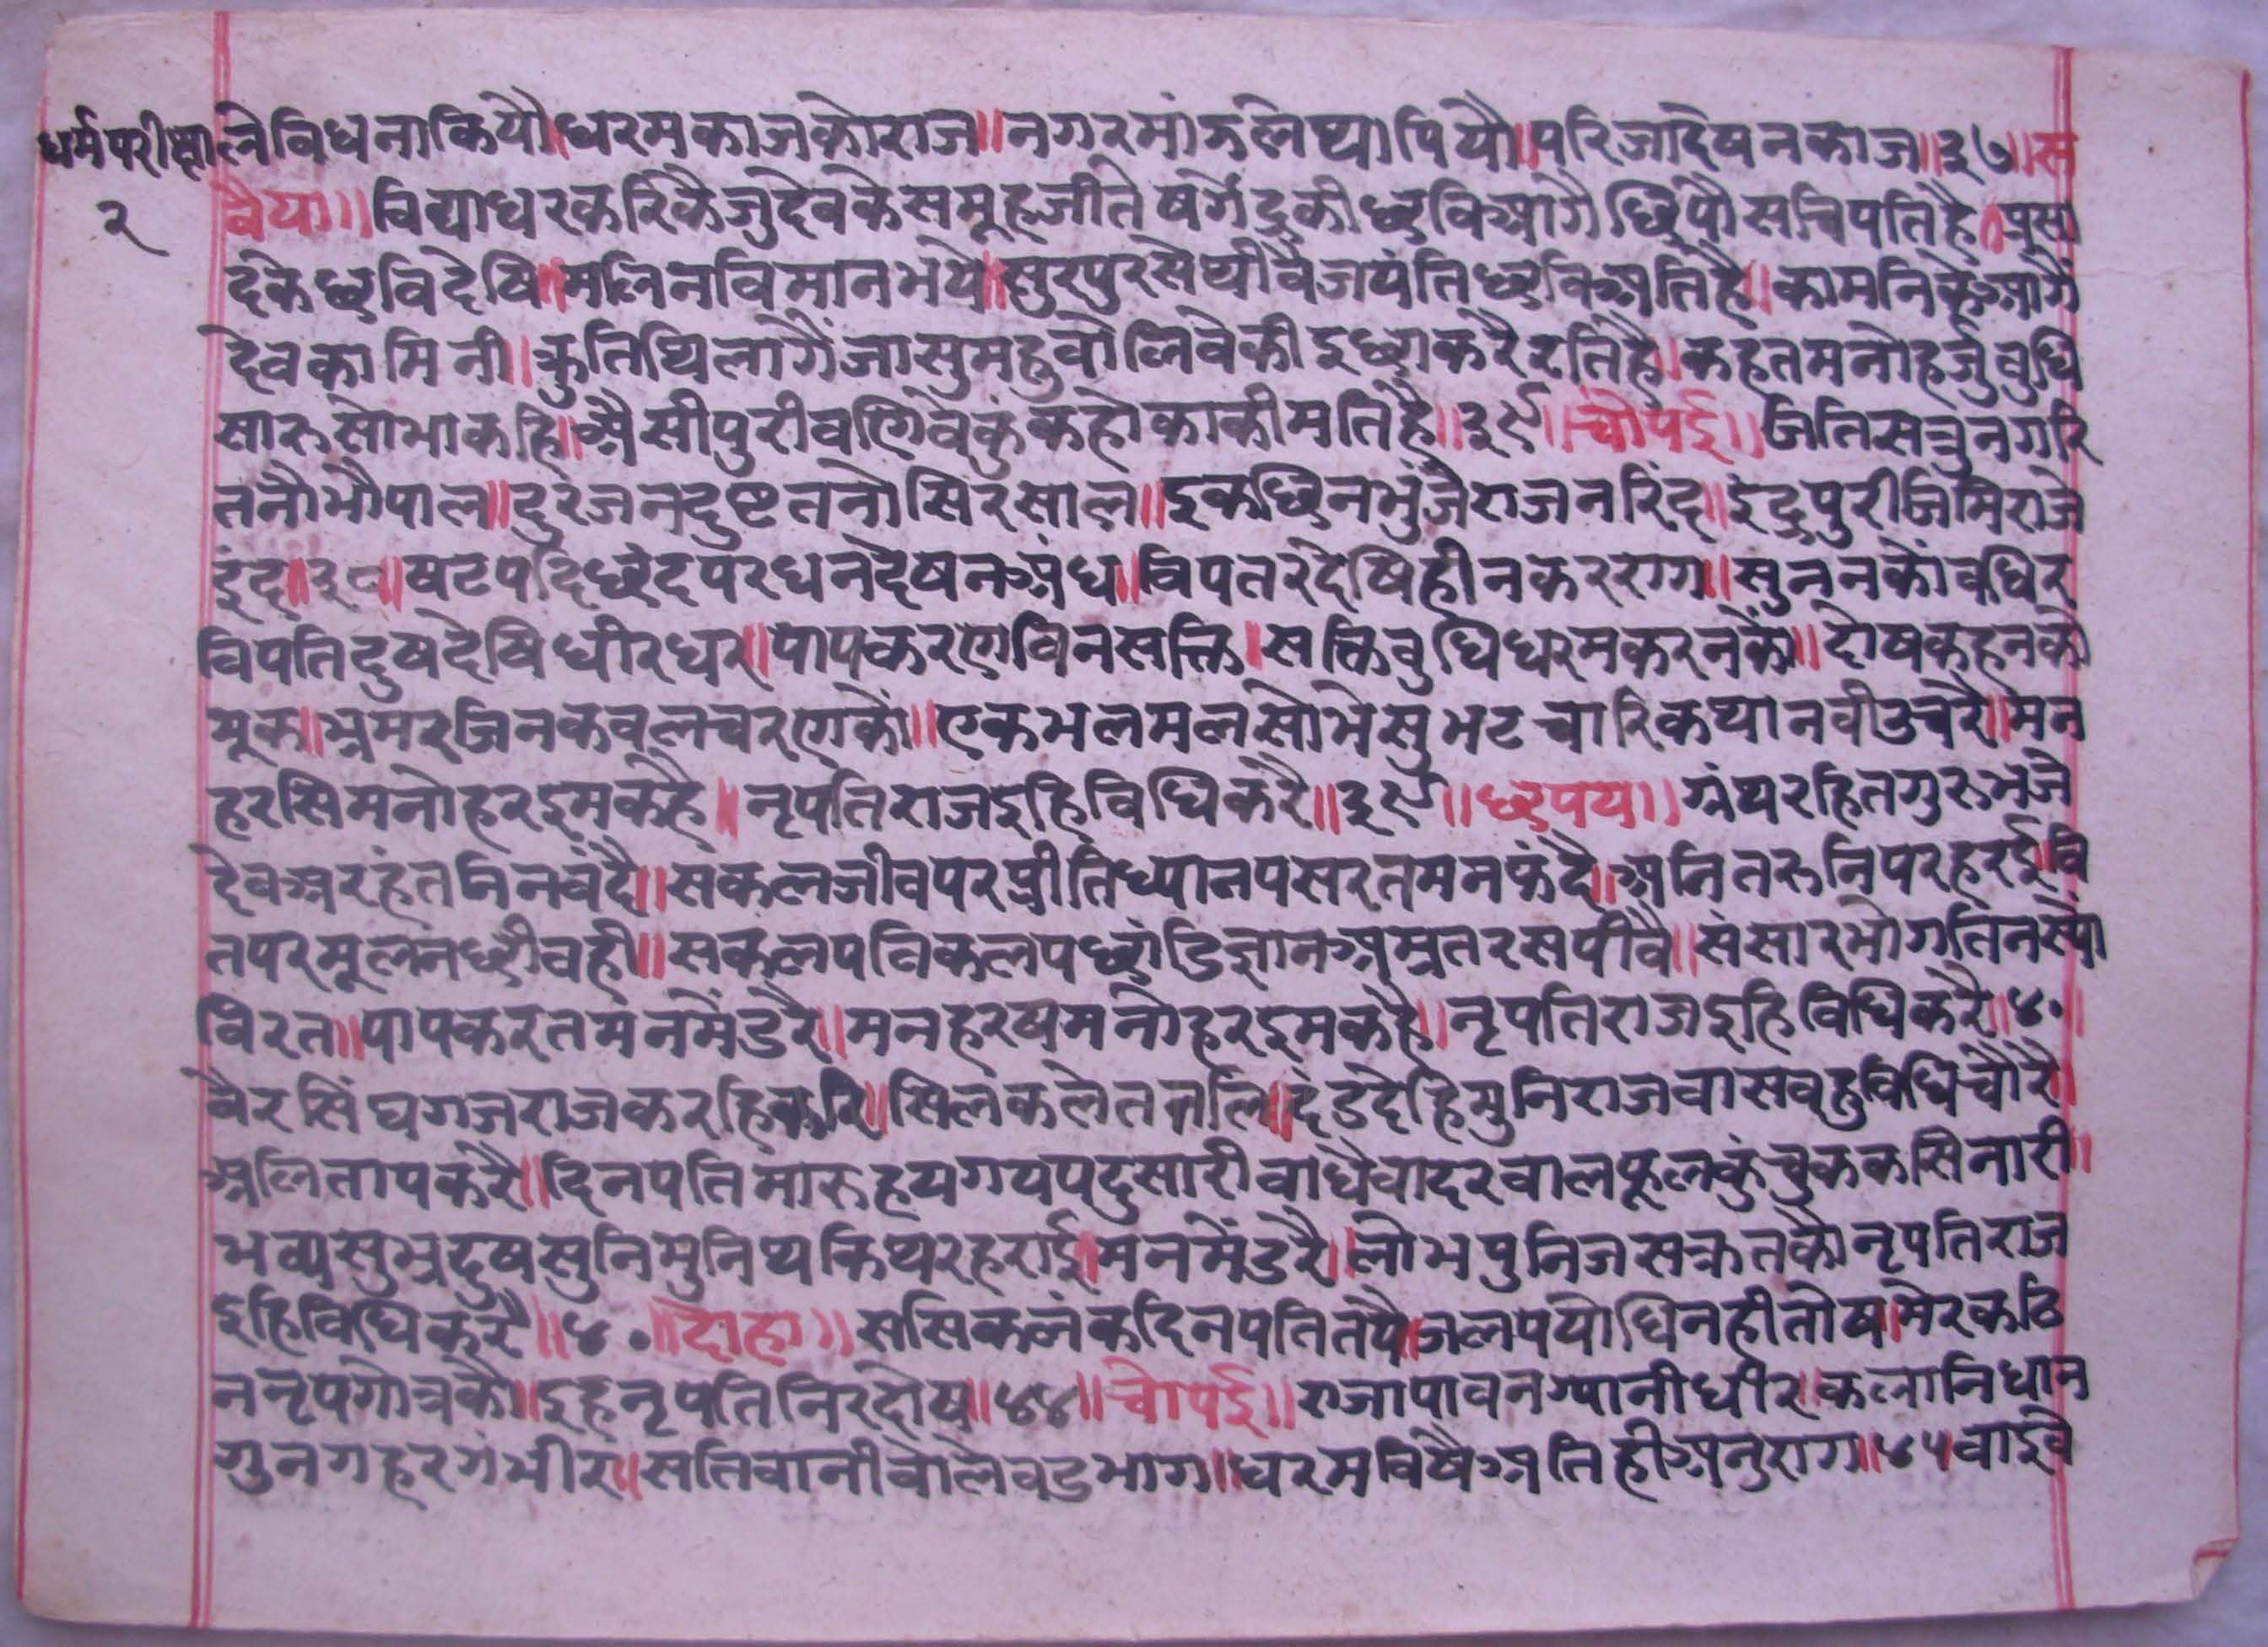 धर्मपरीक्षा
२
लेविधनाकियौ॥धरमकाजकोराज॥नगरमांऊलेथापियौ॥परिजादेषनकाज॥३७॥स
वैया॥विद्याधरकरिकैजुदेवकेसमूहजीते षगेंदुकीछविआगै छिपौसचिपतिहै॥प्रसा
दकेछविदेषि॥मलिनविमानभये॥सुरपुरसेथीवैजयंतिछविअतिहै॥कामनिकेआगैं
देवकामिनी॥कुतिथिलागैंजासुमहुवोलिवेकीइछाकरैरतिहै॥कहतमनोहर्जुबुधि
सारुसोभाकहि॥अैसीपुरीवर्णिवेकुंकहोकाकीमतिहै॥३९॥चोपई॥जितिसत्रुनगरि
तनौभौपाल॥दुरंजनदुष्टतनोसिरसाल॥इकछिनभुंजैराजनरिंद॥इंद्रपुरीजिमिराजे
इंद॥३८॥षटपदिछंदपरधनदेषनअंध॥विपतरंदेषिहीनकररराग॥सुननकोंवधिर
विपतिदुषदेषिधीरधर॥पापकरणविनसक्ति॥सक्तिबुधिधरमकरनकौं॥दोषकहनको
मूक॥भ्रमरजिनकवलचरणकौं॥एकभलमलसोभेसुभटचारिकथानवीउचरै॥मन
हरसिमनोहरइमकहै॥नृपतिराजइहिविधिकरै॥३९॥छपय॥ग्रंथरहितगुरुभजे
देवअरहंतजिनवंदै॥सकलजीवपरप्रीतिध्यानपसरतमनफंदै॥अनितरुनिपरहरईवि
तपरमूलनछीवही॥सकलपविकलपछांडिज्ञानअम्रतरसपीवै॥संसारभोगतिनस्पा
विरत॥पापकरतमनमेंडरै॥मनहरषमनोहरइमकहै॥नृपतिराजइहिविधिकरै॥४०॥
वैरसिंघगजराजकरहिकरि॥सिलकलेतनलि॥दंडदेहिमुनिराजवासवहुविधिचौरै॥
अलितापकरै॥दिनपतिमारुहयगयपदुसारीवाधैवादरवालफूलकुंचुककसिनारी॥
भव्यसुभ्रदुषसुनिमुनिथकिथरहराई॥मनमेंडरै॥लोभपुनिजसक्रतकौनृपतिराज
इहिविधिकरै॥४०॥दोहा॥ससिकलंकदिनपतितपै॥जलपयोधिनहीतोष॥मेरकठि
ननृपगोत्रकौ॥इहनृपतिनिरदोष॥४४॥चोपई॥राजापावनग्यानीधीर॥कलानिधान
गुनगहरगंभीर॥सतिवानीबोलैवडभाग॥धरमविषैअतिहीअनुराग॥४५वाइवै